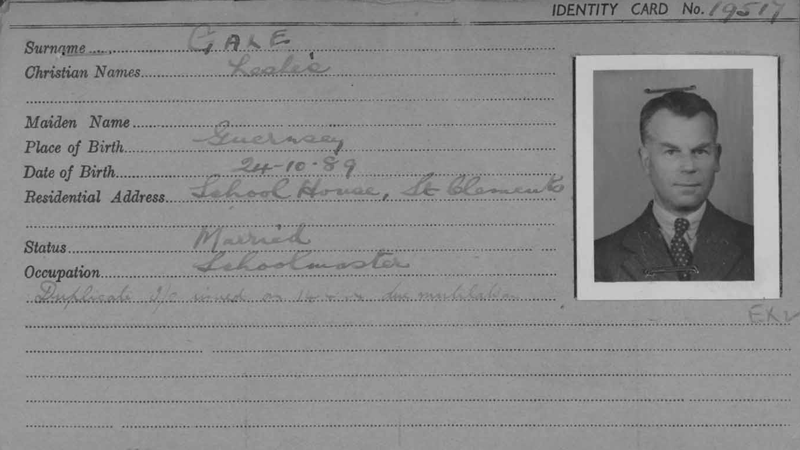 IDENTITY CARD No. 19517
Surname GALE
Christian Names Leslie
Maiden Name
Place of Birth Guernsey
Date of Birth 24-10-89
Residential Address School House, St Clements
Status Married
Occupation Schoolmaster
Duplicate I/C issued on due mutilation